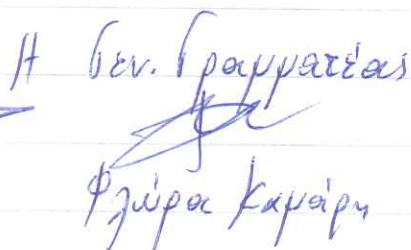 Η Γεν. Γραμματέας
Φλώρα Καμάρη